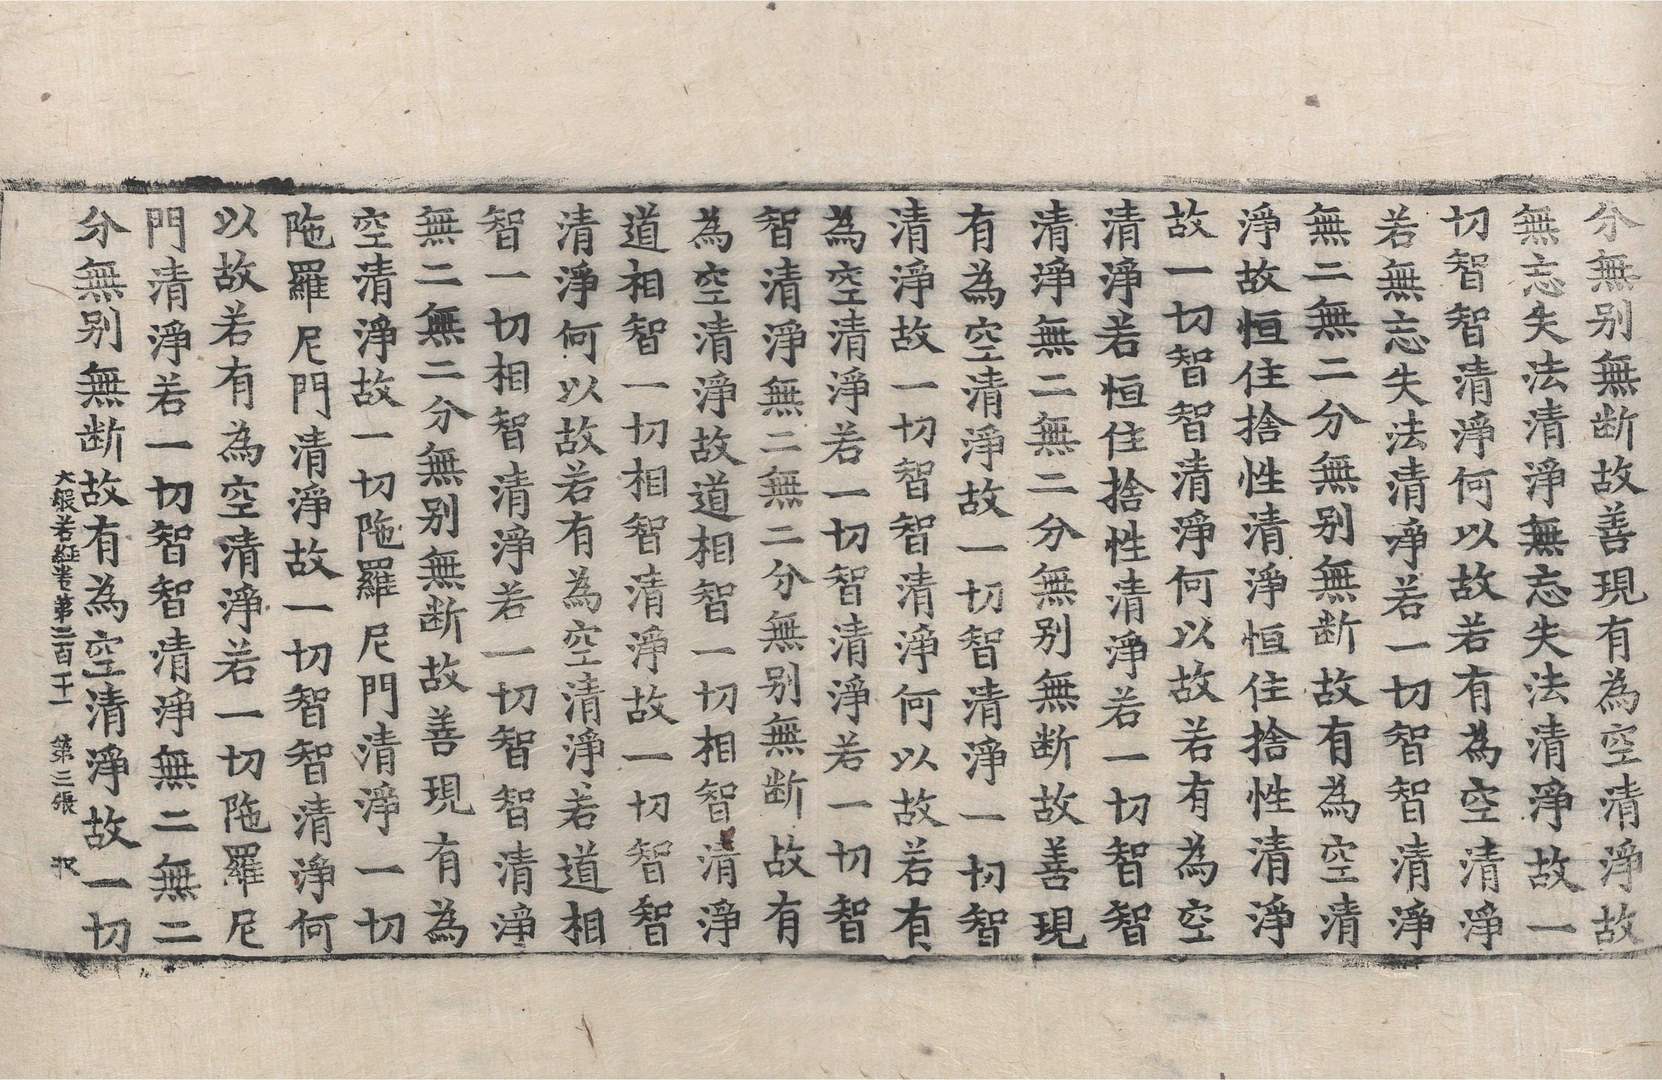 分無別無断故善現有為空清淨故
無忘失法清淨無忘失法清淨故一
切智智清淨何以故若有為空清淨
若無忘失法清淨若一切智智清淨
無二無二分無別無断故有為空清
淨故恒住捨性清淨恒住捨性清淨
故一切智智清淨何以故若有為空
清淨若恒住捨性清淨若一切智智
清淨無二無二分無別無断故善現
有為空清淨故一切智清淨一切智
清淨故一切智智清淨何以故若有
為空清淨若一切智清淨若一切智
智清淨無二無二分無別無断故有
為空清淨故道相智一切相智清淨
道相智一切相智清淨故一切智智
清淨何以故若有為空清淨若道相
智一切相智清淨若一切智智清淨
無二無二分無別無断故善現有為
空清淨故一切陁羅尼門清淨一切
陁羅尼門清淨故一切智智清淨何
以故若有為空清淨若一切陁羅尼
門清淨若一切智智清淨無二無二
分無別無断故有為空清淨故一切
大般若經卷第二百一十一 第三張